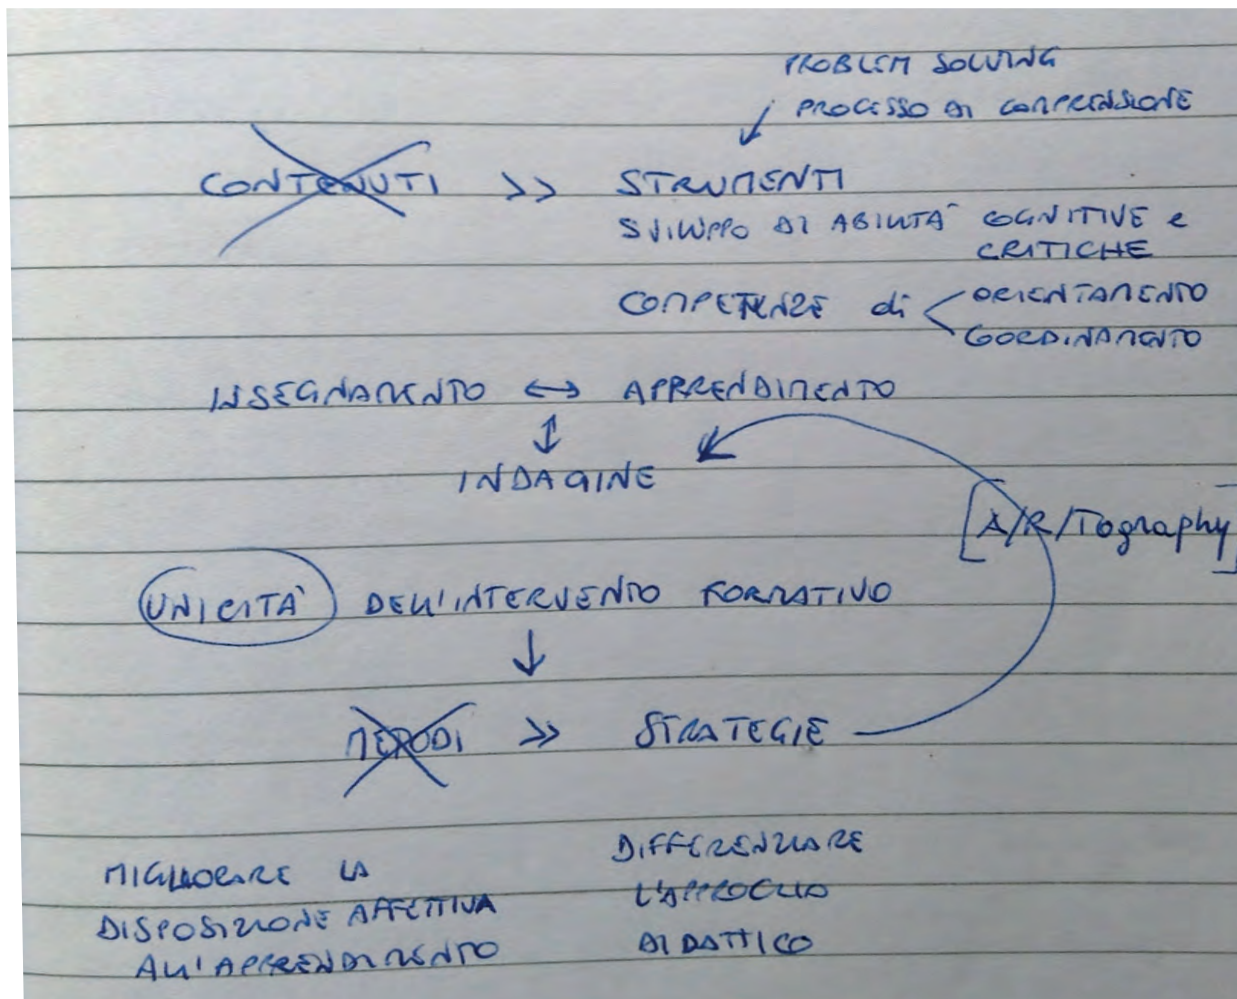 PROBLEM SOLVING
PROCESSO DI COMPRENSIONE
CONTENUTI >> STRUMENTI
SVILUPPO DI ABILITÀ COGNITIVE e
CRITICHE
COMPETENZE di < ORIENTAMENTO
COORDINAMENTO
INSEGNAMENTO ↔ APPRENDIMENTO
↕
INDAGINE
[A/R/Tography]
UNICITÀ DELL'INTERVENTO FORMATIVO
↓
METODI >> STRATEGIE
MIGLIORARE LA
DISPOSIZIONE AFFETTIVA
ALL'APPRENDIMENTO
DIFFERENZIARE
L'APPROCCIO
DIDATTICO